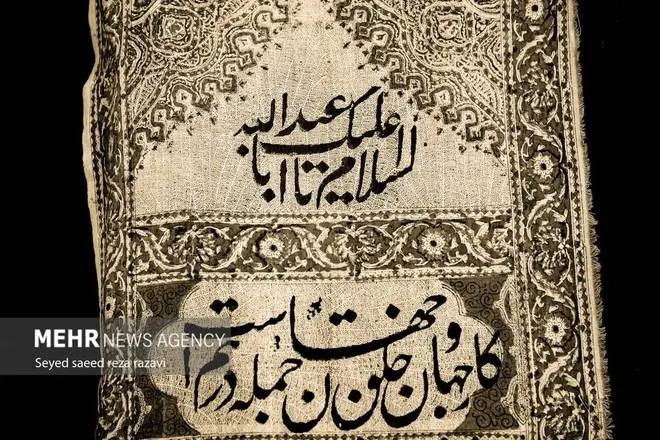 السلام علیک یا ابا عبدالله
کار جهان و خلق جهان جمله در هم است
MEHR NEWS AGENCY
Seyed saeed reza razavi